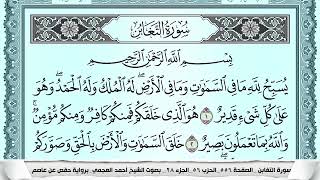 سُورَةُ التَّغَابُنِ
بِسْمِ ٱللَّهِ ٱلرَّحْمَٰنِ ٱلرَّحِيمِ
يُسَبِّحُ لِلَّهِ مَا فِي ٱلسَّمَٰوَٰتِ وَمَا فِي ٱلْأَرْضِۖ لَهُ ٱلْمُلْكُ وَلَهُ ٱلْحَمْدُۖ وَهُوَ
عَلَىٰ كُلِّ شَيْءٍ قَدِيرٌ ١ هُوَ ٱلَّذِي خَلَقَكُمْ فَمِنكُمْ كَافِرٌ وَمِنكُم مُّؤْمِنٌۚ
وَٱللَّهُ بِمَا تَعْمَلُونَ بَصِيرٌ ٢ خَلَقَ ٱلسَّمَٰوَٰتِ وَٱلْأَرْضَ بِٱلْحَقِّ وَصَوَّرَكُمْ
سورة التغابن الصفحة ٥٥٦ الحزب ٥٦ الجزء ٢٨ بصوت الشيخ أحمد العجمي برواية حفص عن عاصم